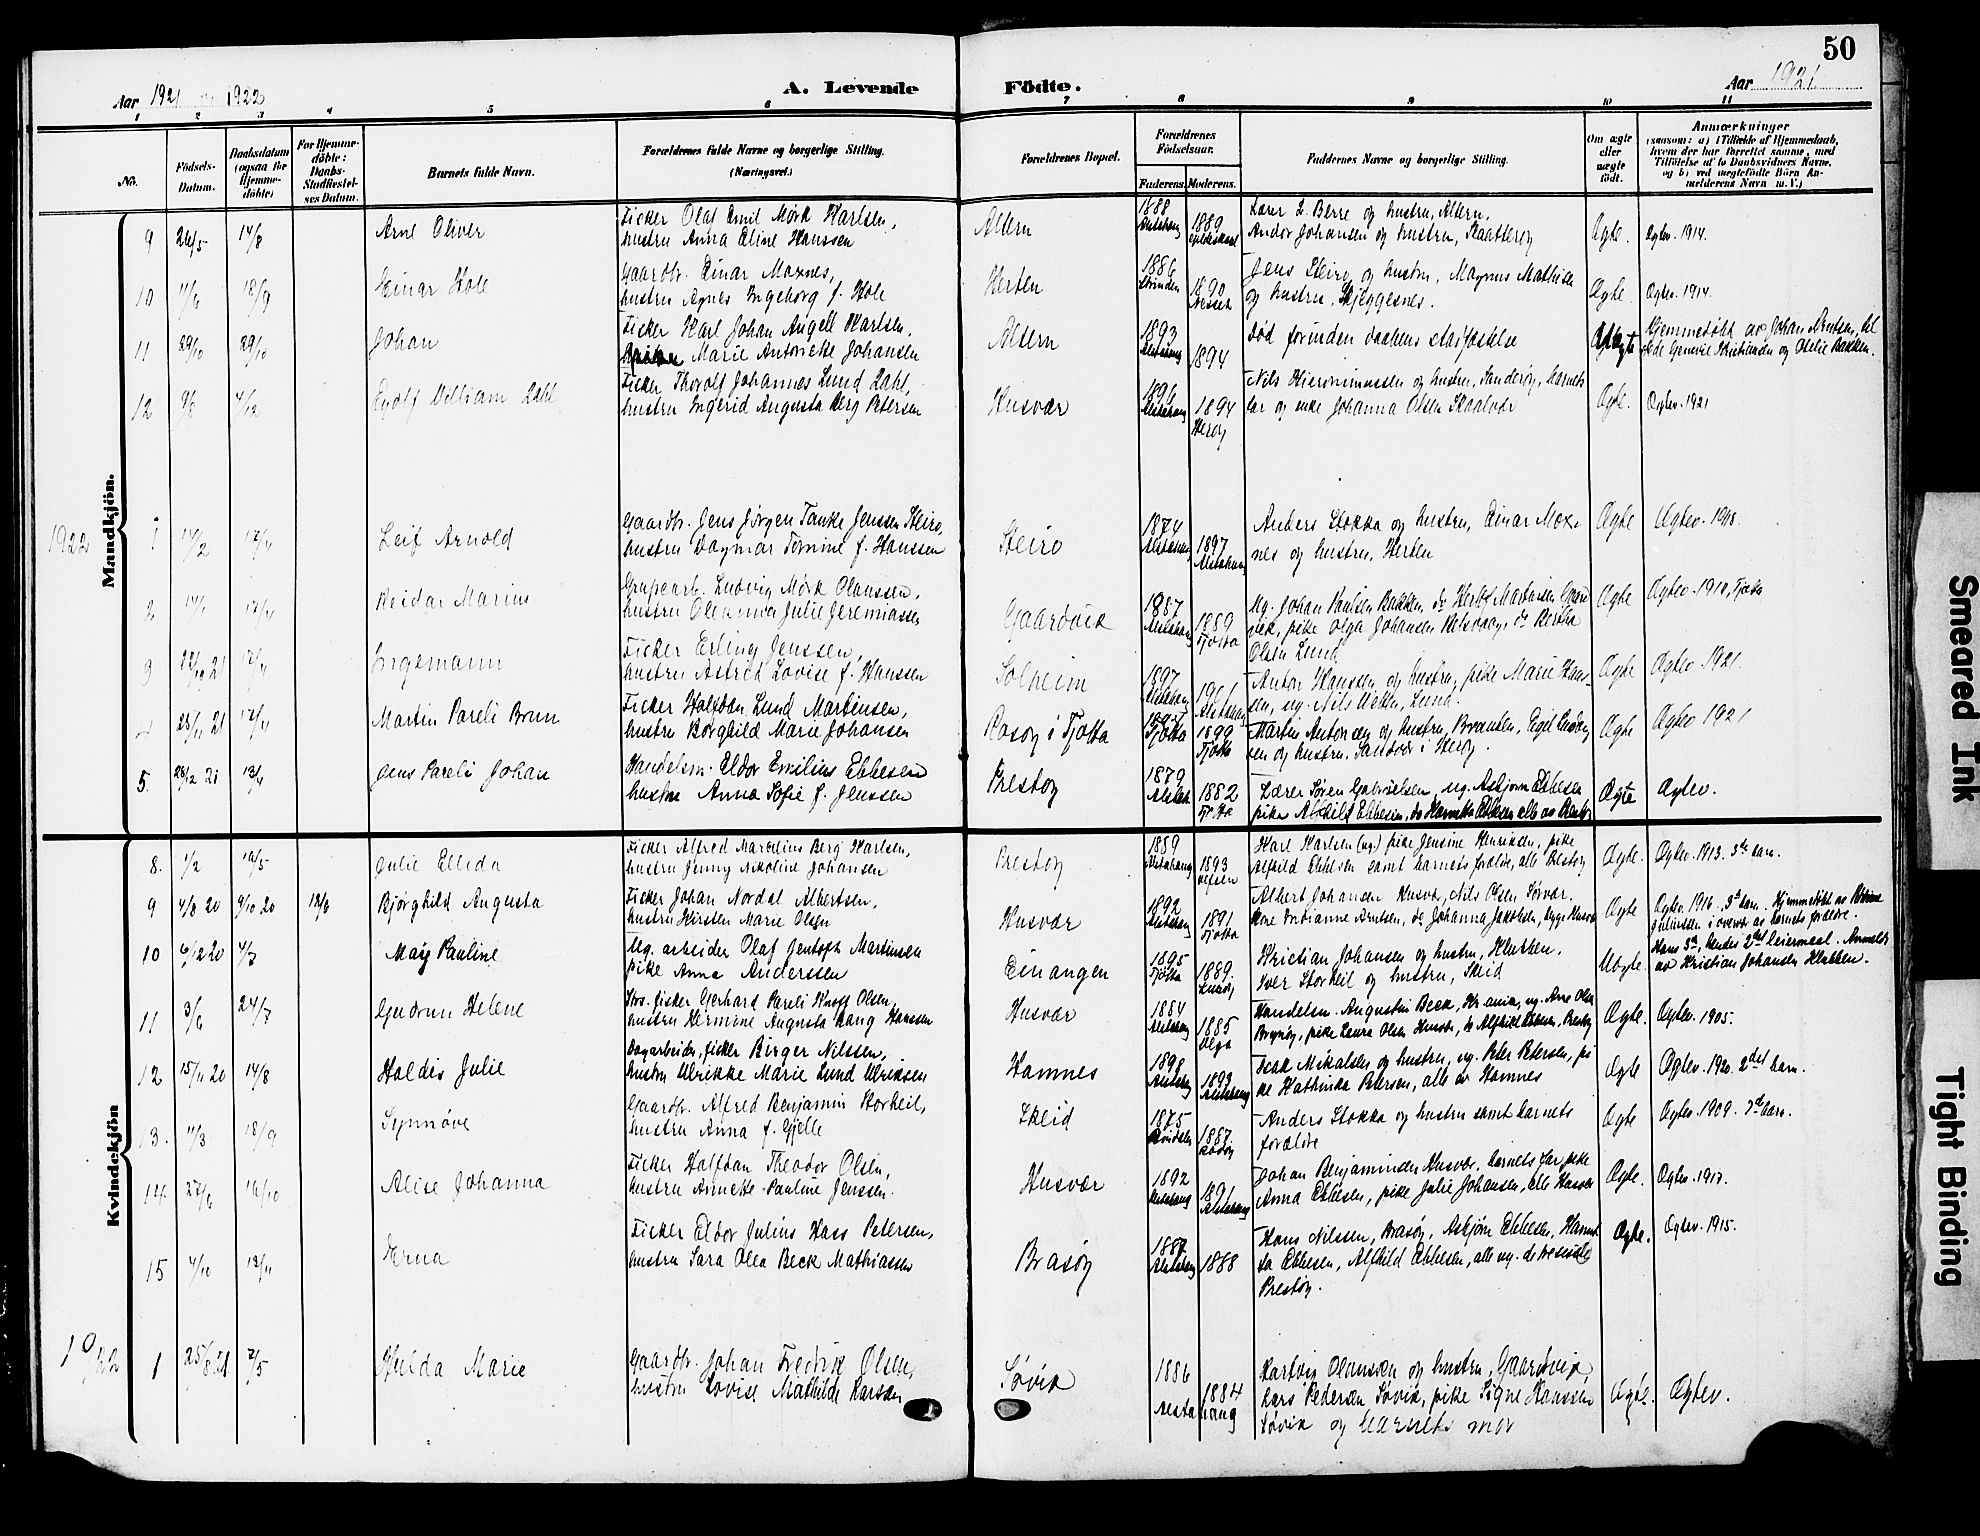 50
Aar 1921 og 1922
A. Levende
Födte.
Aar 1921
1 2 3 4 5 6 7 8 9 10 11
No.
Födsels-
Datum.
Daabsdatum
(ogsaa for
Hjemme-
döbte)
For Hjemme-
döbte:
Daabs-
Stadfæstel-
ses Datum.
Barnets fulde Navn.
Forældrenes fulde Navne og borgerlige Stilling.
(Næringsvei.)
Forældrenes Bopæl.
Forældrenes
Födselsaar.
Faderens. Moderens.
Faddernes Navne og borgerlige Stilling.
Om ægte
eller
uægte
födt.
Anmærkninger
(saasom: a) i Tilfælde af Hjemmedaab,
hvem der har forrettet samme, med
Tilföielse af to Daabsvidners Navne,
og b) ved uægtefödte Börn An-
melderens Navn m. V.)
Mandkjön.
9 26/5 14/8 Arne Oliver
Fisker Olaf Emil Mørk Karlsen,
hustru Anna Eline Hanssen
Altern
1888 1889
Lærer L. Berre og hustru, Altern,
Andor Johansen og hustru, Skaatterøy
Ægte. Ægtev. 1914.
10 11/6 18/9 Einar Hole
Gaardbr. Einar Moxnes,
hustru Agnes Ingeborg f. Hole
Herten
1886 1890
Jens Steiro og hustru, Magnus Mathisen
og hustru, Skjeggesnes.
Ægte Ægtev. 1914.
11 29/10 29/10 Johan
Fisker Karl Johan Angell Karlsen,
Marie Antonette Johansen
Altern
1893 1894
Død forinden daabens stadfæstelse
Uægte
Hjemmedøbt av Johan Arntsen, til
12 9/8 4/12 Eyolf William Dahl
Fisker Thorolf Johannes Lund Dahl,
hustru Ingerid Augusta Berg Petersen
Husvær
1896 1894
Herøy
Nils Hieronimussen og hustru, Sanderøy, barnets
far og enke Johanna Olsen Skaalvær
Ægte. Ægtev. 1921
1922
1 14/2 17/4 Leif Arnold
Gaardbr. Jens Jörgen Tanke Jenssen Steiro,
hustru Dagmar Tomine f. Hanssen
Steiro
1874 1897
Anders Stokka og hustru, Einar Mox-
nes og hustru, Herten
Ægte Ægtev. 1918.
2 14/1 17/4 Reidar Marius
Grubearb. Ludvig Mørk Olaussen,
hustru Oleanna Julie Jeremiassen
Gaardvik
1887 1889
Tjøtta
Ug. Johan Paulsen Bakken, do Herlof Martinsen Gaard-
vik, pike Olga Johansen Relsvaag, do Bertha
Olsen Lund
Ægte Ægtev. 1910, Tjøtta
3 21 17/4 Ingemann
Fisker Erling Jenssen,
hustru Astrid Lovise f. Hanssen
Solheim
1897 1901
Anton Hanssen og hustru, pike Marie Hans-
sen, ug. Nils Lund.
Ægte Ægtev. 1921.
4 25/11 21 17/4 Martin Pareli Brun
Fisker Halfdan Lund Martinsen,
hustru Borghild Marie Johansen
Rosøy i Tjøtta
Tjøtta 1899
Tjøtta
Martin Antonsen og hustru, Brauten, Egil Ludvig-
sen og hustru, Sandvær i Herøy.
Ægte Ægtev 1921
5 28/12 21 13/4 Jens Pareli Johan
Handelsm. Eldor Emilius Ebbesen
hustru Anna Sofie f. Jenssen
Prestøy
1879 1882
Tjøtta
Lærer Søren Gabrielsen, ug. Asbjørn Ebbesen
pike Alfhild Ebbesen, do Hannetta Ebbesen alle av Prestøy
Ægte Ægtev.
Kvindekjön
8. 1/2 16/5 Julie Ellida
Fisker Alfred Marcelius Berg Karlsen,
hustru Jenny Nikoline Johansen
Prestøy
1889 1893
Vefsen
Karl Karlsen (ug.) pike Jensine Henriksen, pike
Alfhild Ebbesen samt barnets forældre, alle Prestøy
Ægte. Ægtev. 1913. 3die barn.
9 4/8 20 3/10 20 18/8 Bjørghild Augusta
Fisker Johan Nordal Albertsen,
hustru Kirsten Marie Olsen
Husvær
1892 1891
Tjøtta
Albert Johansen Husvær, Nils Olsen Sørvær,
kone Indianne Arntsen, do Johanna Jakobsen, begge Husvær
Ægte
Ægtev. 1916. 3die barn. Hjemmedøbt av
Juliussen i overvær av barnets forældre.
10 6/12 20 4/7 May Pauline
Ug. arbeider Olaf Jentoft Martinsen
pike Anna Anderssen
Einangen
1895 1889.
Tjøtta Lurøy
Kristian Johansen og hustru, Klubben.
Iver Storheil og hustru, Skeid
Uægte
Hans 3die, hendes 2det leiermaal. Anmeldt
av Kristian Johansen Klubben.
11 3/6 24/7 Gudrun Helene
Sks. fisker Gerhard Pareli Knoff Olsen,
hustru Hermine Augusta Lang Hanssen
Husvær
1884 1885
Vega
Handelsm. Augustin Beck, Kristiania, ug. Arne Olsen
Brynøy, pike Laura Olsen Husvær, do Alfhild Ebbesen, Prestøy
Ægte. Ægtev. 1905.
12 15/11 20 14/8 Haldis Julie
Dagarbeider, fisker Birger Nilssen,
hustru Ulrikke Marie Lund Ulriksen
Hamnes
1898 1899
Isak Mikalsen og hustru, ug. Peter Petersen, pi-
ke Kathinka Petersen, alle av Hamnes
Ægte Ægtev. 1920. 2det barn.
13. 11/3 18/9 Synnøve
Gaardbr. Alfred Benjamin Storheil,
hustru Anna f. Gjelle
Skeid
1875 1887.
Rødøy
Anders Stokka og hustru samt barnets
forældre
Ægte Ægtev. 1909. 7de barn.
14 27/6 16/10 Alise Johanna
Fisker Halfdan Theodor Olsen,
hustru Annette Pauline Jenssen
Husvær
1892 1891
Johan Benjaminsen Husvær, barnets far, pike
Anna Ebbesen, pike Julie Johansen, alle Husvær
Ægte. Ægtev. 1917.
15 4/10 13/11 Erna
Fisker Eldor Julius Hass Petersen,
hustru Sara Olea Beck Mathiassen
Brasøy
1888
Hans Nilssen, Brasøy, Asbjørn Ebbesen, Hannet-
ta Ebbesen, Alfhild Ebbesen, alle ug. de tre sidste
Prestøy.
Ægte. Ægtev. 1915.
1922
1 25/8 21 7/5 Hulda Marie
Gaardbr. Johan Fredrik Olsen,
hustru Lovise Mathilde Larsen
Søvik
1886 1884
Alstahaug
Hartvig Olaussen og hustru, Gaardvik,
Lars Pedersen Søvik, pike Signe Hanssen
Søvik og barnets mor
Ægte. Ægtev.
Smeared Ink
Tight Binding